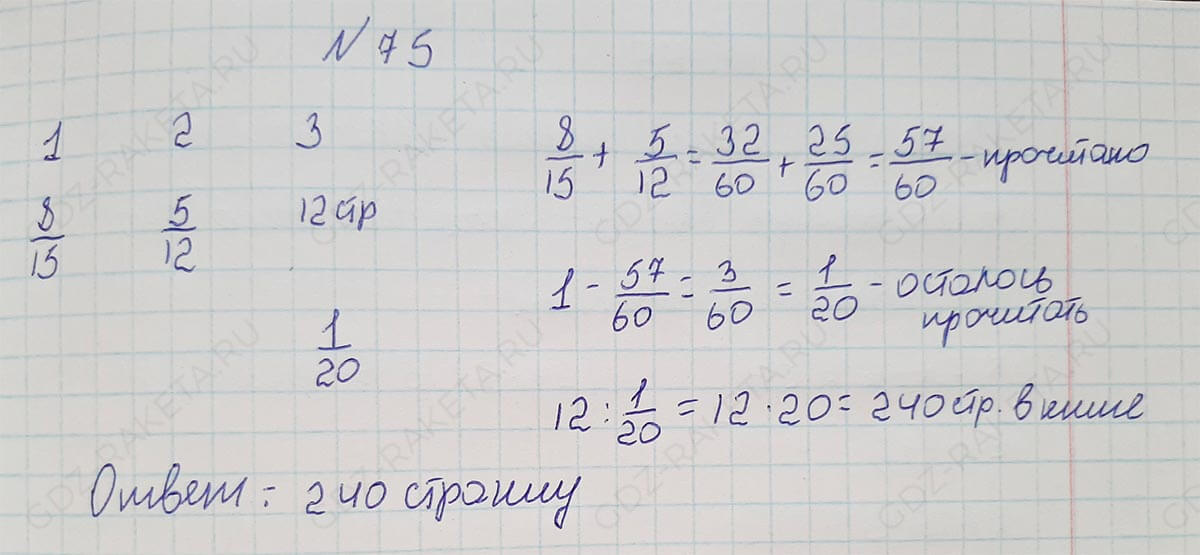 N 75
1 2 3
8/15 5/12 12 стр
1/20
8/15 + 5/12 = 32/60 + 25/60 = 57/60 - прочитано
1 - 57/60 = 3/60 = 1/20 - осталось
прочитать
12 : 1/20 = 12 · 20 = 240 стр. в книге
Ответ: 240 страниц
GDZ-RAKETA.RU